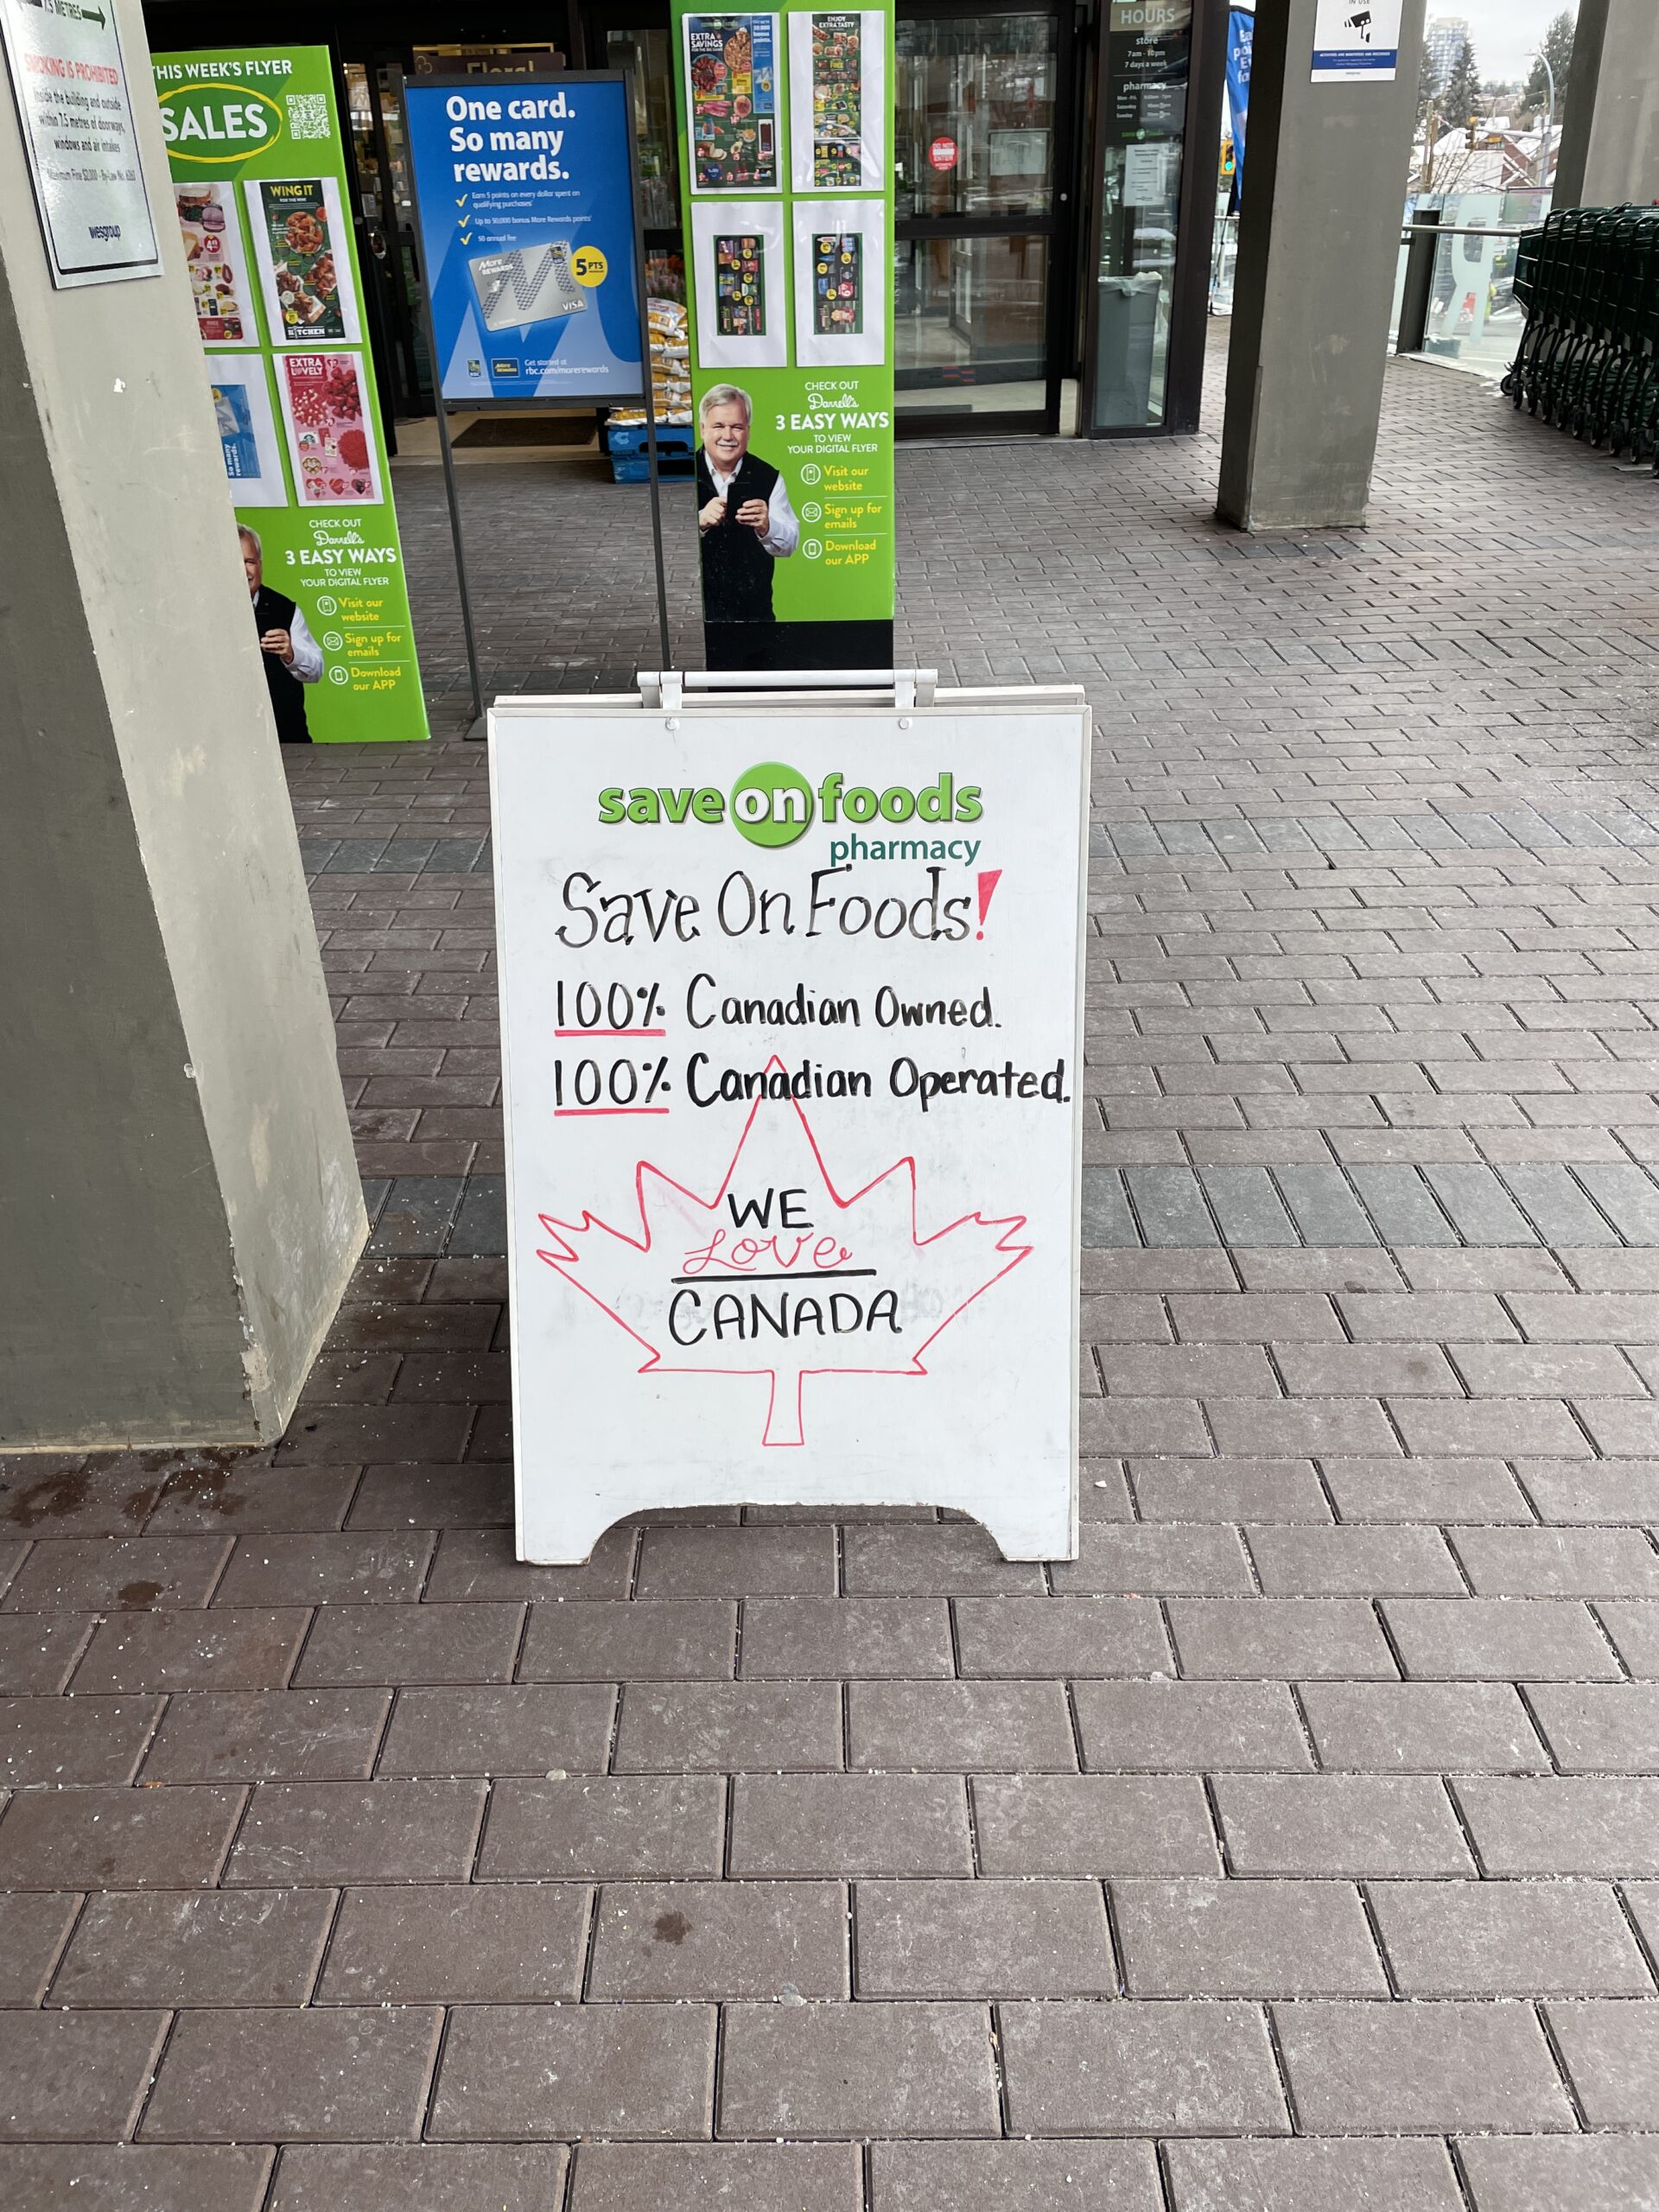 7.5 METRES
SMOKING IS PROHIBITED
inside the building and outside
within 7.5 metres of doorways,
windows and air intakes
wesgroup
THIS WEEK'S FLYER
SALES
WING IT
FOR THE WIN!
KITCHEN
EXTRA
LOVELY
So many
rewards.
CHECK OUT
Darrell's
3 EASY WAYS
TO VIEW
YOUR DIGITAL FLYER
Visit our
website
Sign up for
emails
Download
our APP
Floral
One card.
So many
rewards.
Earn 5 points on every dollar spent on
qualifying purchases
Up to 50,000 bonus More Rewards points
$0 annual fee
More
REWARDS
5 PTS
VISA
RBC
More
REWARDS
Get started at
rbc.com/morerewards
EXTRA
SAVINGS
ENJOY
EXTRA TASTY
CHECK OUT
Darrell's
3 EASY WAYS
TO VIEW
YOUR DIGITAL FLYER
Visit our
website
Sign up for
emails
Download
our APP
DO NOT
ENTER
HOURS
store
7 days a week
pharmacy
IN USE
save on foods
pharmacy
Save On Foods!
100% Canadian Owned.
100% Canadian Operated.
WE
Love
CANADA